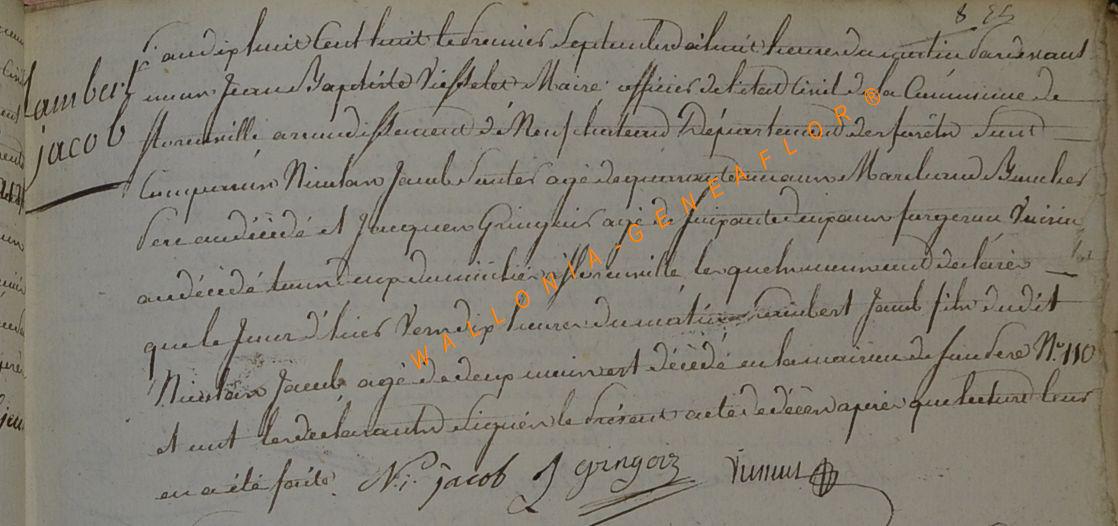 8
Lambert
jacob
L'an dixhuit Cent huit le premier Septembre à huit heures du matin Pardevant
nous Jean Baptiste Maire officier de l'état Civil de la Commune de
florenville arrondissement de Neufchateau Département des forêts sont
Comparus Nicolas Jacob agé de quarante ans Marchand Boucher
Pere au décédé et Jacques Gringoire agé de soixante deux ans forgeron Voisin
au décédé tous deux domiciliés à florenville les quels nous ont déclarés
que le Jour d'hier Vers dix heures du matin Lambert Jacob fils dudit
Nicolas Jacob agé de deux mois est décédé en la maison de son Pere N.° 110
et ont les déclarants signés le Présent acte de décès après que lecture leur
en a été faite. Ni. jacob J gringoir
WALLONIA-GENEAFLOR®